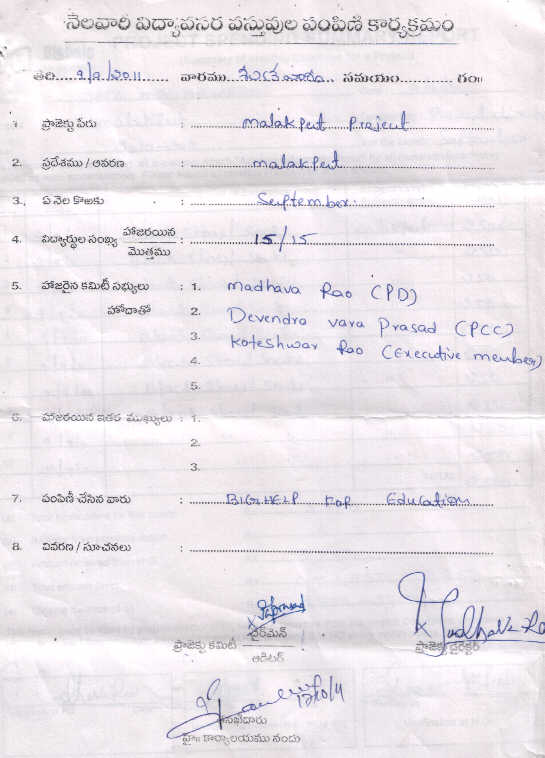 నెలవారీ విద్యావసర వస్తువుల పంపిణి కార్యక్రమం
తేది.....9/9/2011...... వారము శుక్రవారం.. సమయం............ గం॥
1. ప్రాజెక్టు పేరు : malakpet Project
2. ప్రదేశము / ఆవరణ : malakpet
3., ఏ నెల కొఱకు : September.
4. విద్యార్థుల సంఖ్య హాజరయిన / మొత్తము : 15/15
5. హాజరైన కమిటీ సభ్యులు : 1. madhava Rao (PD)
హోదాతో 2. Devendra vara Prasad (PCC)
3. Koteshwar Rao (Executive member)
4.
5.
6. హాజరయిన ఇతర ముఖ్యులు : 1.
2.
3.
7. పంపిణీ చేసిన వారు : BIGHELP For Education
8. వివరణ / సూచనలు :
ప్రాజెక్టు కమిటీ చైర్మన్ ప్రాజెక్టు డైరెక్టర్
ఆడిటర్
12/10/11
హై॥ కార్యాలయము నందు